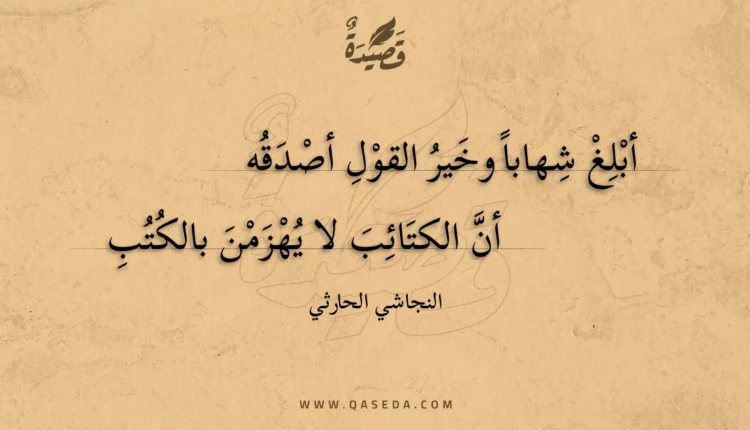 قَصِيْدَةٌ
أبْلِغْ شِهاباً وخَيرُ القوْلِ أصْدَقُه
أنَّ الكتَائِبَ لا يُهْزَمْنَ بالكُتُبِ
النجاشي الحارثي
WWW.QASEDA.COM